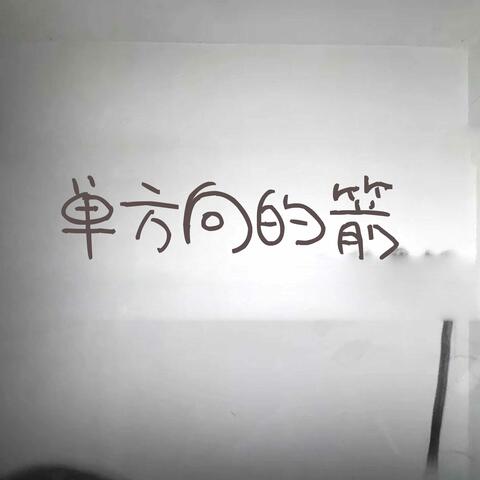 单方向的箭